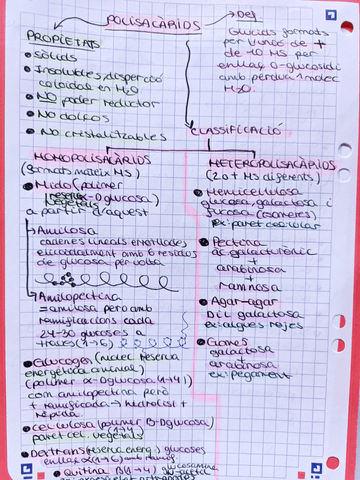 POLISACÀRIDS
→ Def
Glúcids formats
per unió de +
de 10 MS per
enllaç O-glucosídic
amb pèrdua 1 molec
H₂O.
PROPIETATS
• Sòlids
• Insolubles, dispersió
coloidal en H₂O
• NO poder reductor
• NO dolços
• No cristal·litzables
CLASSIFICACIÓ
HOMOPOLISACÀRIDS
(formats mateix MS)
• Midó (polímer
reserva α-D glucosa)
vegetals
a partir d'aquest
Amilosa
cadenes lineals enrotllades
helicoidalment amb 6 residus
de glucosa per volta
Amilopectina
= amilosa però amb
ramificacions cada
24-30 glucoses a
través (1→6)
• Glucogen (molec reserva
energètica animal)
(polímer α-D glucosa 1→4)
com amilopectina però
+ ramificada → hidròlisi +
ràpida
• Cel·lulosa (polímer β-D glucosa)
(1→4)
paret cel. vegetals
• Dextrans (reserva energ.) glucoses
enllaç α(1→6) amb ramif
• Quitina β(1→4) glucosamina
HETEROPOLISACÀRIDS
(2 o + MS diferents)
• Hemicel·lulosa
glucosa, galactosa i
fucosa (isòmeres)
ex: paret cel·lular
• Pectina
àc galacturònic
+
arabinosa
+
ramnosa
• Agar-agar
D i L galactosa
ex: algues rojes
• Gomes
galactosa
+
arabinosa
ex: pegament